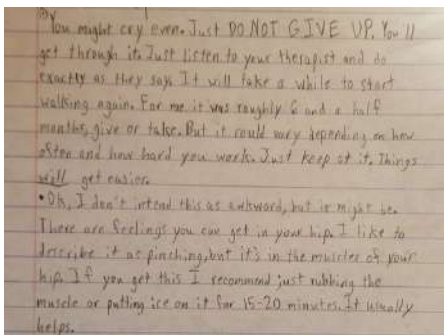 You might cry even. Just DO NOT GIVE UP. You'll
get through it. Just listen to your therapist and do
exactly as they say. It will take a while to start
walking again. For me it was roughly 6 and a half
months, give or take. But it could vary depending on how
often and how hard you work. Just keep at it. Things
will get easier.
• Ok, I don't intend this as awkward, but it might be.
There are feelings you can get in your hip. I like to
describe it as pinching, but it's in the muscles of your
hip. If you get this I recommend just rubbing the
muscle or putting ice on it for 15-20 minutes. It usually
helps.